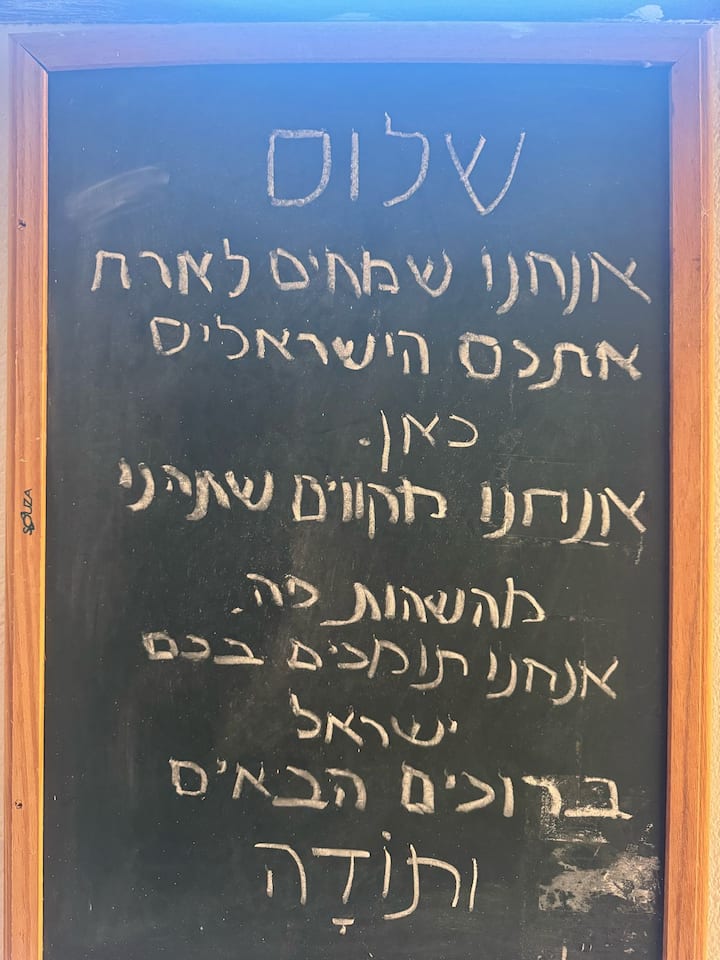 שלום
אנחנו שמחים לארח
אתכם הישראלים
כאן.
אנחנו מקווים שתהני
מהשהות פה.
אנחנו תומכים בכם
ישראל
ברוכים הבאים
ותוֹדָה
SOUZA